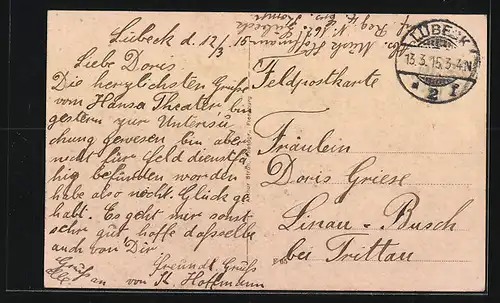 Lübeck d. 12/3 15
Liebe Doris
Die herzlichsten Grüße
vom Hansa Theater, bin
gestern zur Untersu-
chung gewesen, bin aber
nicht für felddienstfä-
hig befunden worden
habe also nocht. Glück ge-
habt. Es geht mir sonst
sehr gut hoffe dasselbe
auch von Dir
Freundl. Gruß
Gruß an von K. Hoffmann
Feldpostkarte
Fräulein
Doris Griese
Linau-Busch
bei Trittau
LÜBECK
13.3.15.3-4N
* 2 r
Hoffmann
Reg.
N. 162
Lübeck